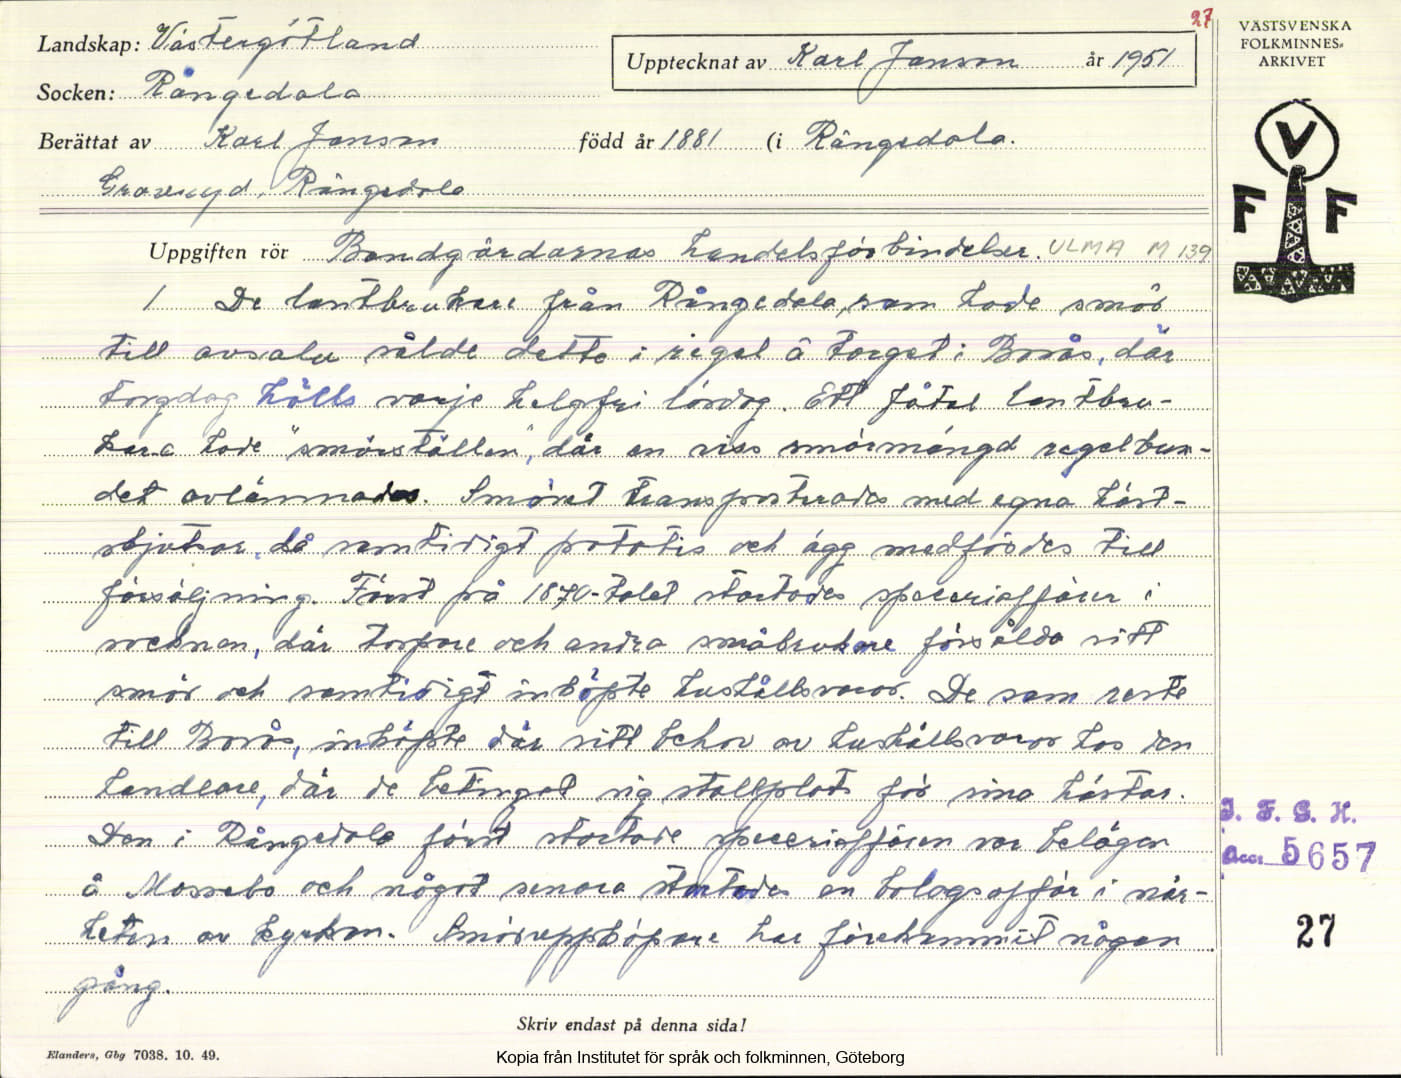 27
VÄSTSVENSKA
FOLKMINNES-
ARKIVET
Landskap: Västergötland
Upptecknat av Karl Janson år 1951
Socken: Rångedala
Berättat av Karl Janson född år 1881 (i Rångedala.
Rångedala
V
F F
Uppgiften rör Bondgårdarnas handelsförbindelser. ULMA M 139
1 De lantbrukare från Rångedala, som hade smör
till avsalu sålde detta i regel å torget i Borås, där
torgdag hölls varje helgfri lördag. Ett fåtal lantbru-
kare hade "smörställen", där en viss smörmängd regelbun-
det avlämnades. Smöret transporterades med egna häst-
skjutsar, då samtidigt potatis och ägg medfördes till
försäljning. Först på 1870-talet startades speceriaffärer i
socknen, där torpare och andra småbrukare försålde sitt
smör och samtidigt inköpte hushållsvaror. De som reste
till Borås, inköpte där sitt behov av hushållsvaror hos den
handlare, där de betingat sig stallplats för sina hästar.
Den i Rångedala först startade speceriaffären var belägen
å Mossebo och något senare startades en bolagsaffär i när-
heten av kyrkan. Smöruppköpare har förekommit någon
gång.
I. F. G. H.
Acc. 5657
27
Skriv endast på denna sida!
Elanders, Gbg 7038. 10. 49.
Kopia från Institutet för språk och folkminnen, Göteborg